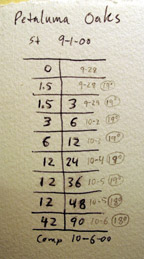 Petaluma Oaks
st 9-1-00
0 9-28
1.5 9-28 19°
1.5 3 9-29 19°
3 6 10-2 19°
6 12 10-2 19°
12 24 10-4 18°
12 36 10-5 19°
12 48 10-5 18°
42 90 10-6 18°
Comp 10-6-00